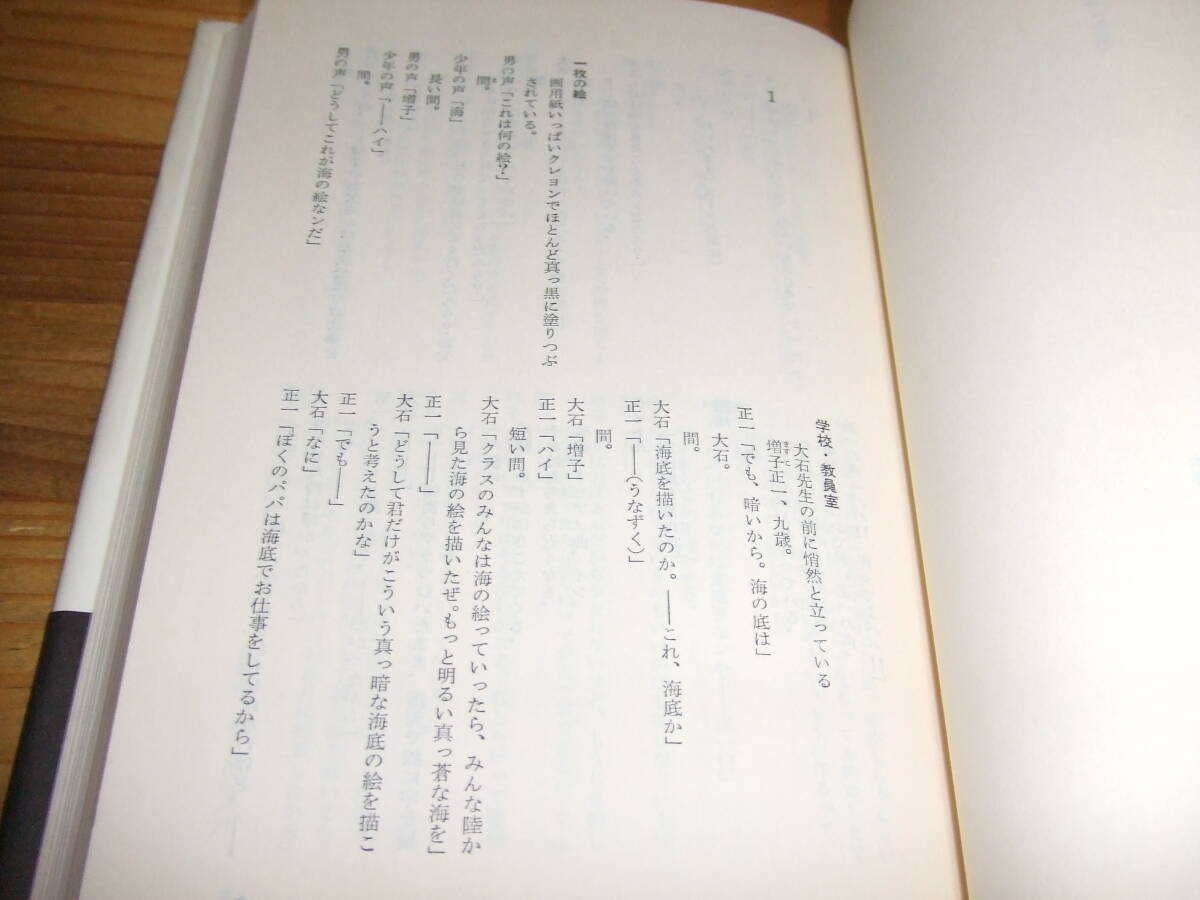 1
一枚の絵
画用紙いっぱいクレヨンでほとんど真っ黒に塗りつぶ
されている。
男の声「これは何の絵?」
間。
少年の声「海」
長い間。
男の声「増子」
少年の声「――ハイ」
間。
男の声「どうしてこれが海の絵なンだ」
学校・教員室
大石先生の前に悄然と立っている
増子正一、九歳。
正一「でも、暗いから。海の底は」
大石。
間。
大石「海底を描いたのか。――これ、海底か」
正一「――(うなずく)」
間。
大石「増子」
正一「ハイ」
短い間。
大石「クラスのみんなは海の絵っていったら、みんな陸か
ら見た海の絵を描いたぜ。もっと明るい真っ蒼な海を」
正一「――――」
大石「どうして君だけがこういう真っ暗な海底の絵を描こ
うと考えたのかな」
正一「でも――」
大石「なに」
正一「ぼくのパパは海底でお仕事をしてるから」